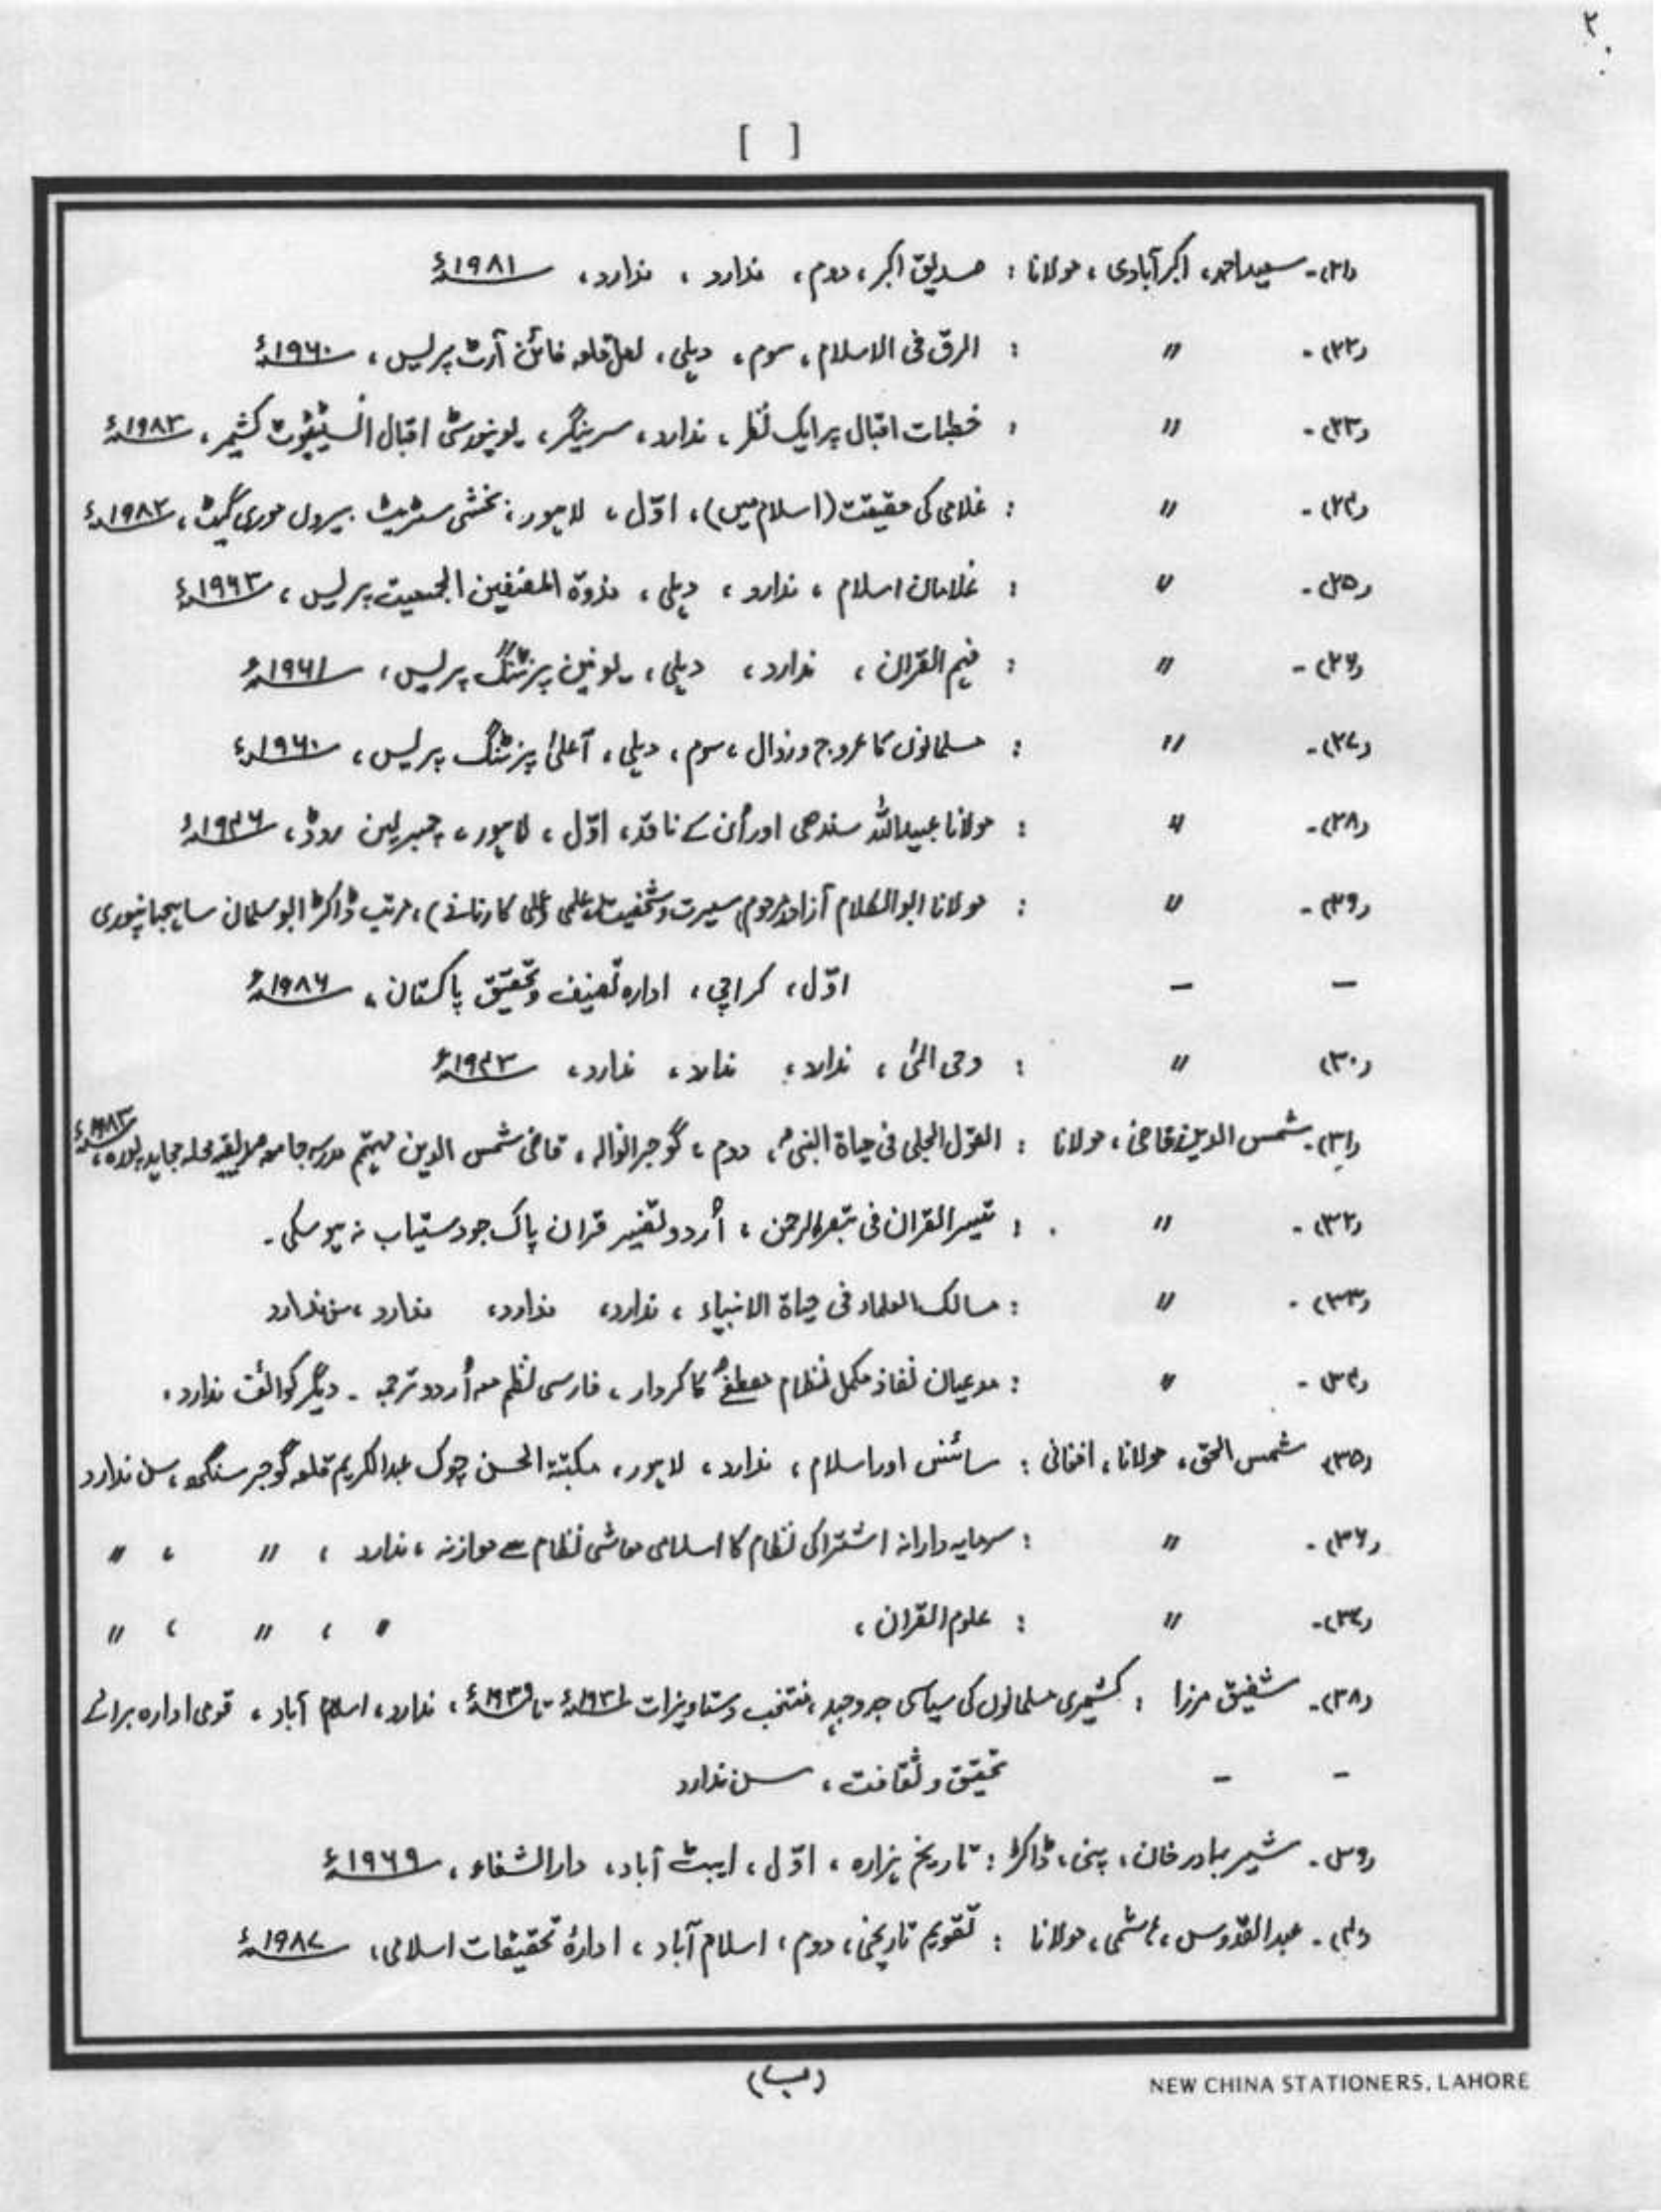 ۲
[ ]
(۲۱)۔ سعید احمد، اکبر آبادی، مولانا : صدیق اکبر، دوم، ندارد، ندارد، ۱۹۸۱ء
(۲۲)۔ 〃 : الرق فی الاسلام، سوم، دہلی، لعل قلعہ فائن آرٹ پریس، ۱۹۶۰ء
(۲۳)۔ 〃 : خطبات اقبال پر ایک نظر، ندارد، سرینگر، یونیورسٹی اقبال انسٹیٹیوٹ کشمیر، ۱۹۸۳ء
(۲۴)۔ 〃 : غلامی کی حقیقت (اسلام میں)، اوّل، لاہور، بخشی سٹریٹ بیرون موری گیٹ، ۱۹۸۲ء
(۲۵)۔ 〃 : غلامان اسلام، ندارد، دہلی، ندوۃ المصنفین الجمعیت پریس،
(۲۶)۔ 〃 : فہم القران، ندارد، دہلی، یونین پرنٹنگ پریس، ۱۹۶۱ء
(۲۷)۔ 〃 : مسلمانوں کا عروج و زوال، سوم، دہلی، آعلیٰ پرنٹنگ پریس، ۱۹۶۰ء
(۲۸)۔ 〃 : مولانا عبیداللہ سندھی اور اُن کے ناقد، اوّل، لاہور، چیمبرلین روڈ، ۱۹۴۶ء
(۲۹)۔ 〃 : مولانا ابوالکلام آزاد مرحوم (سیرت و شخصیت علمی و عملی کارنامے)، مرتب ڈاکٹر ابوسلمان ساہجہانپوری
– – اوّل، کراچی، ادارہ تصنیف و تحقیق پاکستان، ۱۹۸۶ء
(۳۰) 〃 : وحی الٰہی، ندارد، ندارد، ندارد، ۱۹۴۳ء
(۳۱)۔ شمس الدین قاضی، مولانا : القول الجلی فی حیاۃ النبیؐ، دوم، گوجرانوالہ، قاضی شمس الدین مہتمم مدرسہ جامعہ صدیقیہ محلہ مجاہد پورہ،
(۳۲)۔ 〃 : تیسر القران فی تبصر الرحمن، اُردو تفسیر قران پاک جو دستیاب نہ ہو سکی۔
(۳۳)۔ 〃 : مسالک العلماء فی حیاۃ الانبیاء، ندارد، ندارد، ندارد، سن ندارد
(۳۴)۔ 〃 : مدعیان نفاذ مکمل نظام مصطفےٰؐ کا کردار، فارسی نظم معہ اُردو ترجمہ۔ دیگر کوائف ندارد۔
(۳۵) شمس الحق، مولانا، افغانی : سائنس اور اسلام، ندارد، لاہور، مکتبۃ الحسن چوک عبدالکریم قلعہ گوجر سنگھ، سن ندارد
(۳۶)۔ 〃 : سرمایہ دارانہ اشتراکی نظام کا اسلامی معاشی نظام سے موازنہ، ندارد، 〃، 〃
(۳۷)۔ 〃 : علوم القران، 〃، 〃، 〃
(۳۸)۔ شفیق مرزا : کشمیری مسلمانوں کی سیاسی جدوجہد، منتخب دستاویزات ۱۹۳۱ء تا ۱۹۳۹ء، ندارد، اسلام آباد، قومی ادارہ برائے
– – تحقیق و ثقافت، سن ندارد
(۳۹)۔ شیر بہادر خان، پنی، ڈاکٹر : تاریخ ہزارہ، اوّل، ایبٹ آباد، دارالشفاء، ۱۹۶۹ء
(۴۰)۔ عبدالقدوس، ہاشمی، مولانا : تقویم تاریخی، دوم، اسلام آباد، ادارۂ تحقیقات اسلامی، ۱۹۸۷ء
(ب)
NEW CHINA STATIONERS, LAHORE